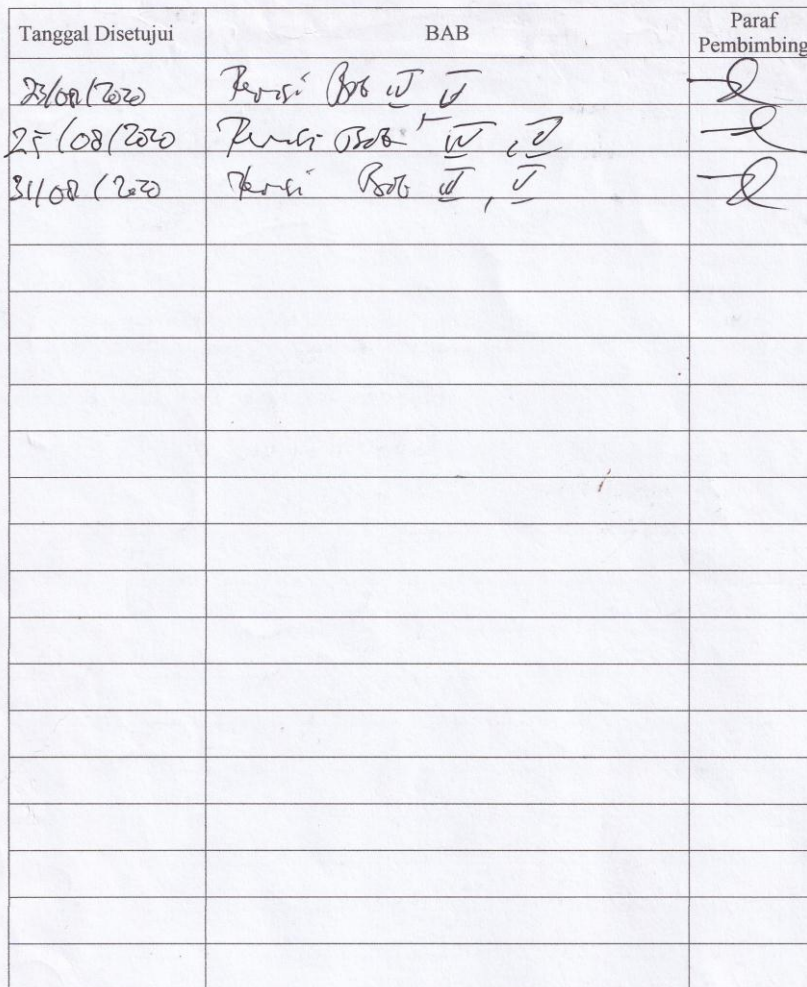 Tanggal Disetujui BAB Paraf Pembimbing
23/08/2020 Revisi Bab IV V
25/08/2020 Revisi Bab IV, V
31/08/2020 Revisi Bab IV, V